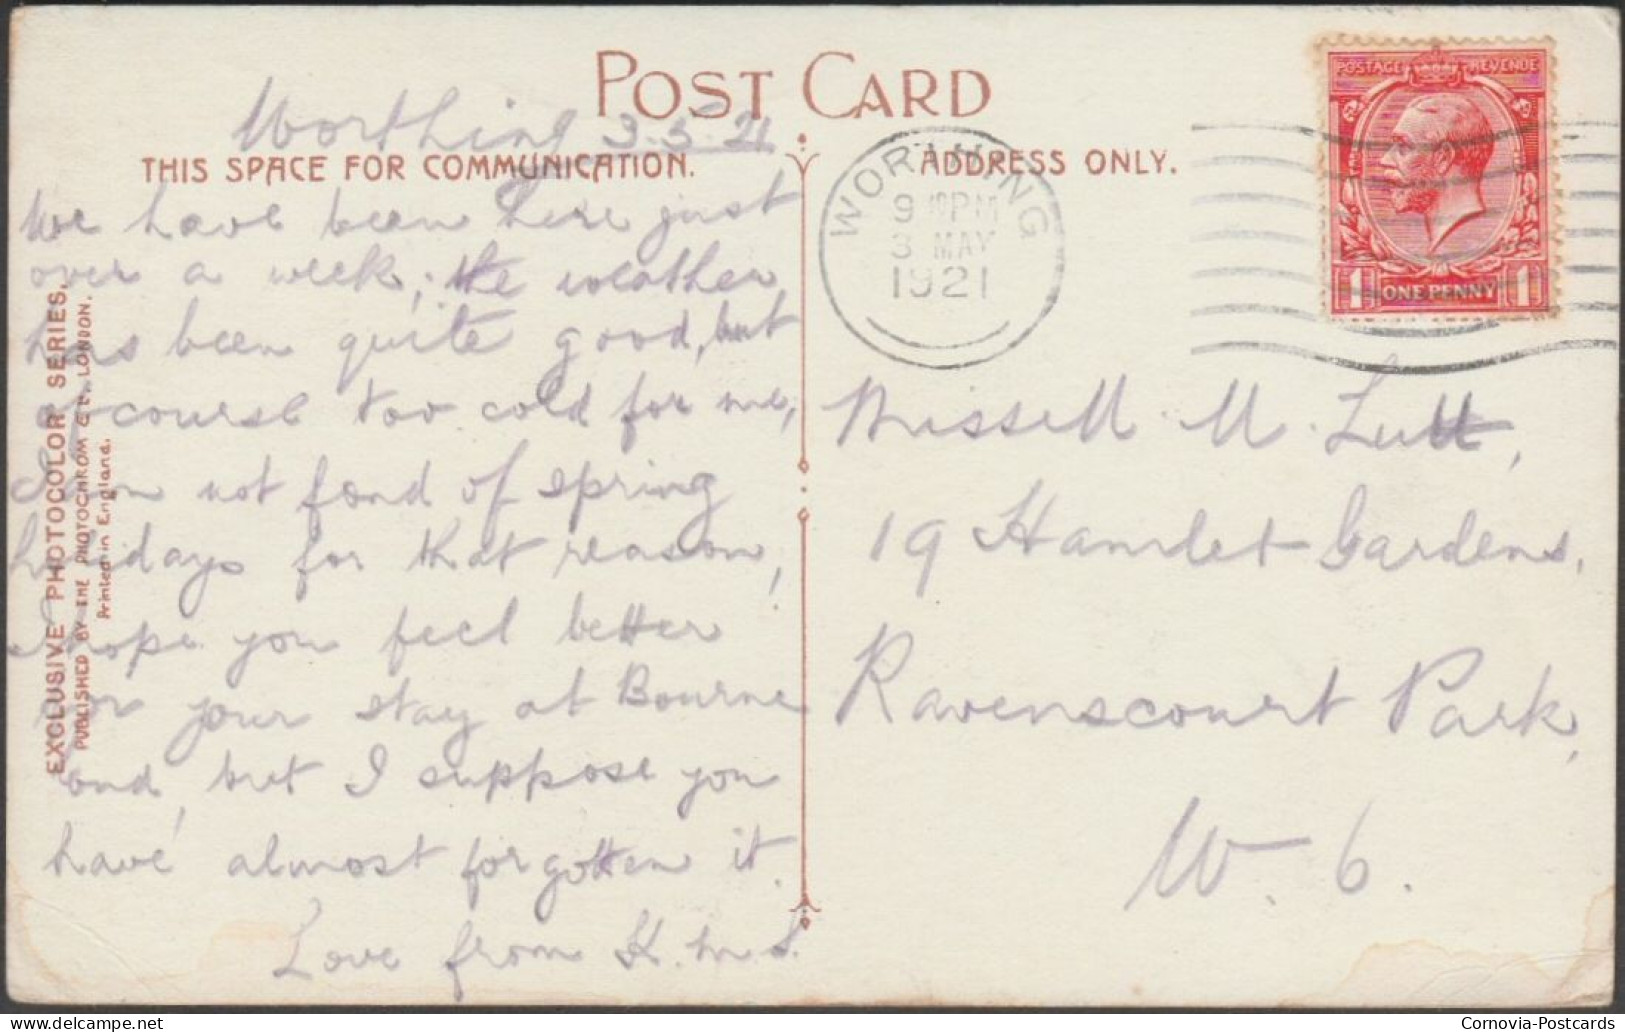 POST CARD
THIS SPACE FOR COMMUNICATION.
ADDRESS ONLY.
Worthing 3-5-21
We have been here just
over a week; the weather
has been quite good, but
of course too cold for me,
I am not fond of spring
holidays for that reason,
I hope you feel better
for your stay at Bourne
end, but I suppose you
have almost forgotten it.
Love from K.M.S.
EXCLUSIVE PHOTOCOLOR SERIES.
PUBLISHED BY THE PHOTOCHROM Co. LTD. LONDON.
Printed in England.
WORTHING
9 10 PM
3 MAY
1921
POSTAGE REVENUE
1 ONE PENNY 1
M. Lutt,
19 Hamlet Gardens,
Ravenscourt Park,
W. 6.
Cornovia-Postcards